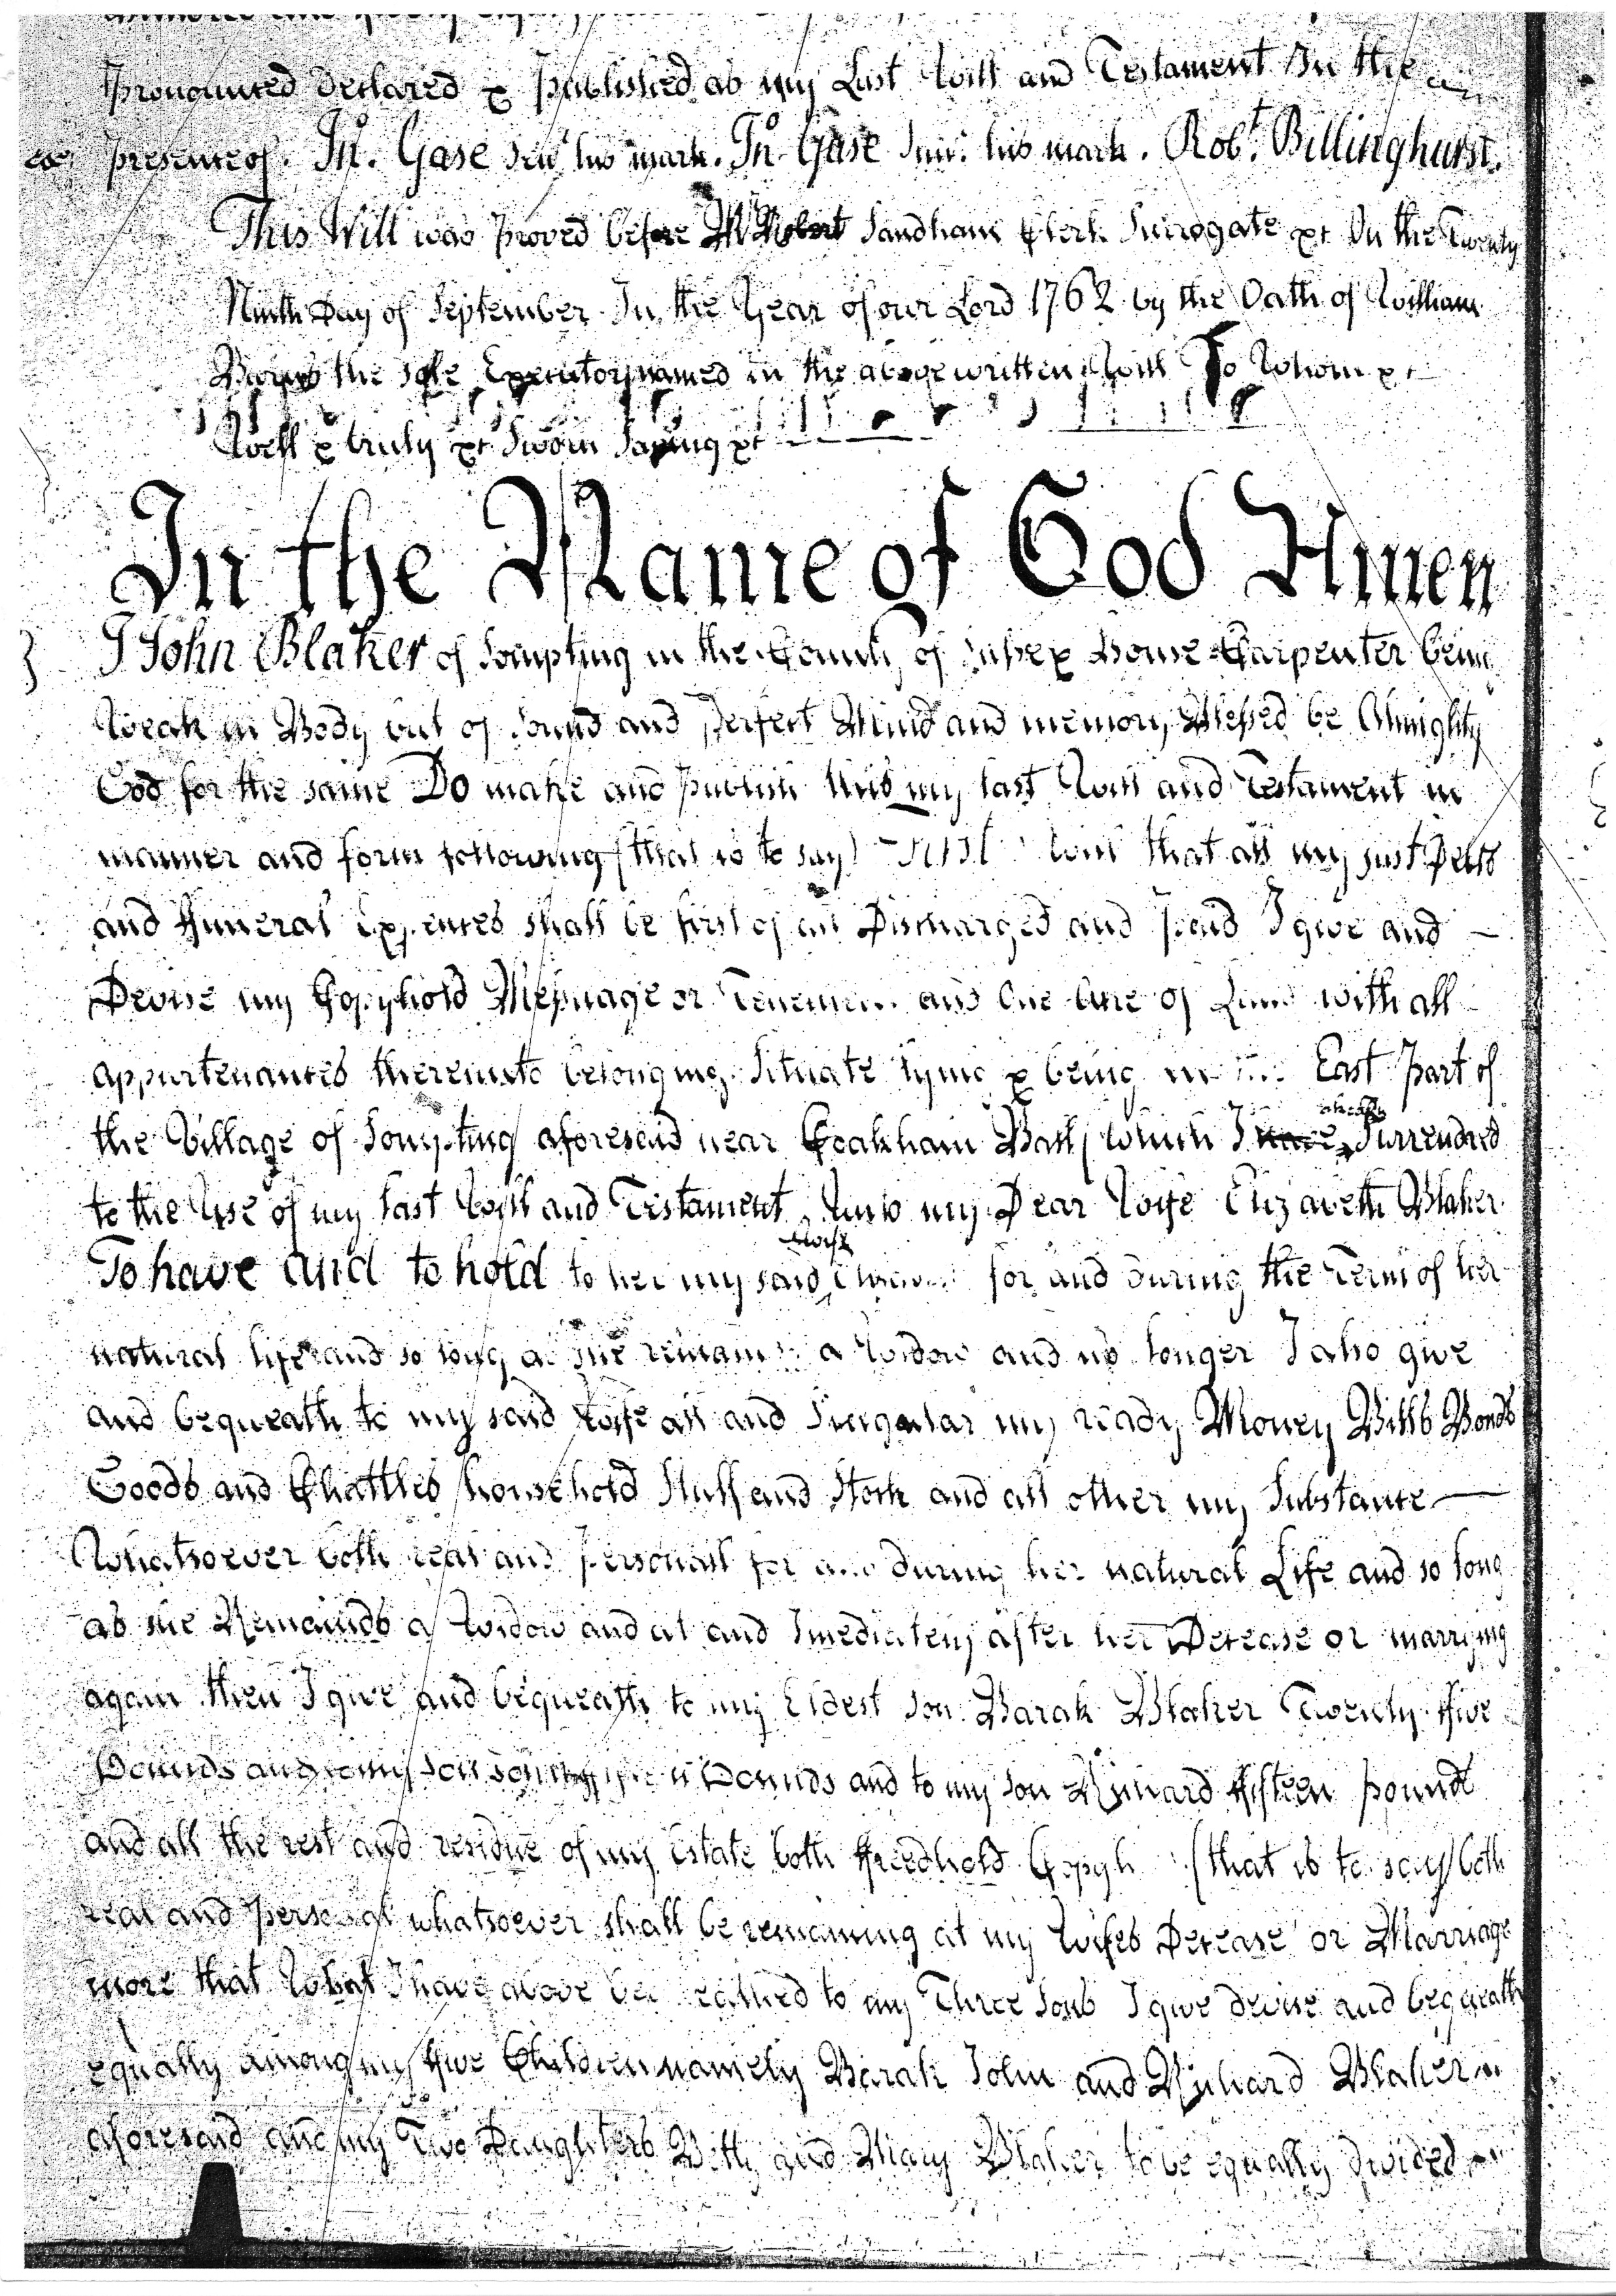 Pronounced Declared & Published as my Last Will and Testament In the
presence of. Jno. Gase Senr his mark. Jno. Gase Junr. his mark. Robt. Billinghurst.
This Will was Proved before Mr Robert Sandham Clerk Surrogate &c On the Twenty
Ninth Day of September In the Year of our Lord 1762 by the Oath of William
the Sole Executor named in the above written Will To Whom &c
Well & truly &c Sworn Saving &c
In the Name of God Amen
I John Blaker of Sompting in the County of Sussex House Carpenter being
Weak in Body but of Sound and Perfect Mind and memory Blessed be Almighty
God for the same Do make and Publish this my last Will and Testament in
manner and form following (that is to say) First I will that all my just Debts
and Funeral Expences shall be first of all Discharged and Paid I give and
Devise my Copyhold Messuage or Tenement and One Acre of Land with all
appurtenances thereunto belonging Situate lying & being in the East Part of
the Village of Sompting aforesaid near Cokeham which I have already Surrendred
to the Use of my last Will and Testament Unto my Dear Wife Elizabeth Blaker
To have and to hold to her my said Wife for and during the Term of her
natural life and so long as she remains a Widow and no longer I also give
and bequeath to my said Wife all and Singular my ready Money Bills Bonds
Goods and Chattles household Stuff and Stock and all other my Substance
Whatsoever both real and Personall for and during her natural Life and so long
as she Remainds a Widow and at and Imediately after her Decease or marrying
again then I give and bequeath to my Eldest Son Barak Blaker Twenty Five
Pounds and to my Son John Pounds and to my Son Richard Fifteen Pounds
and all the rest and residue of my Estate both Freedhold (that is to say) both
real and Personal whatsoever shall be remaining at my Wifes Decease or Marriage
more that What I have above bequeathed to my Three Sons I give devise and bequeath
equally among my Five Children namely Barak John and Richard Blaker
aforesaid and my Two Daughters Betty and Mary Blaker to be equally divided